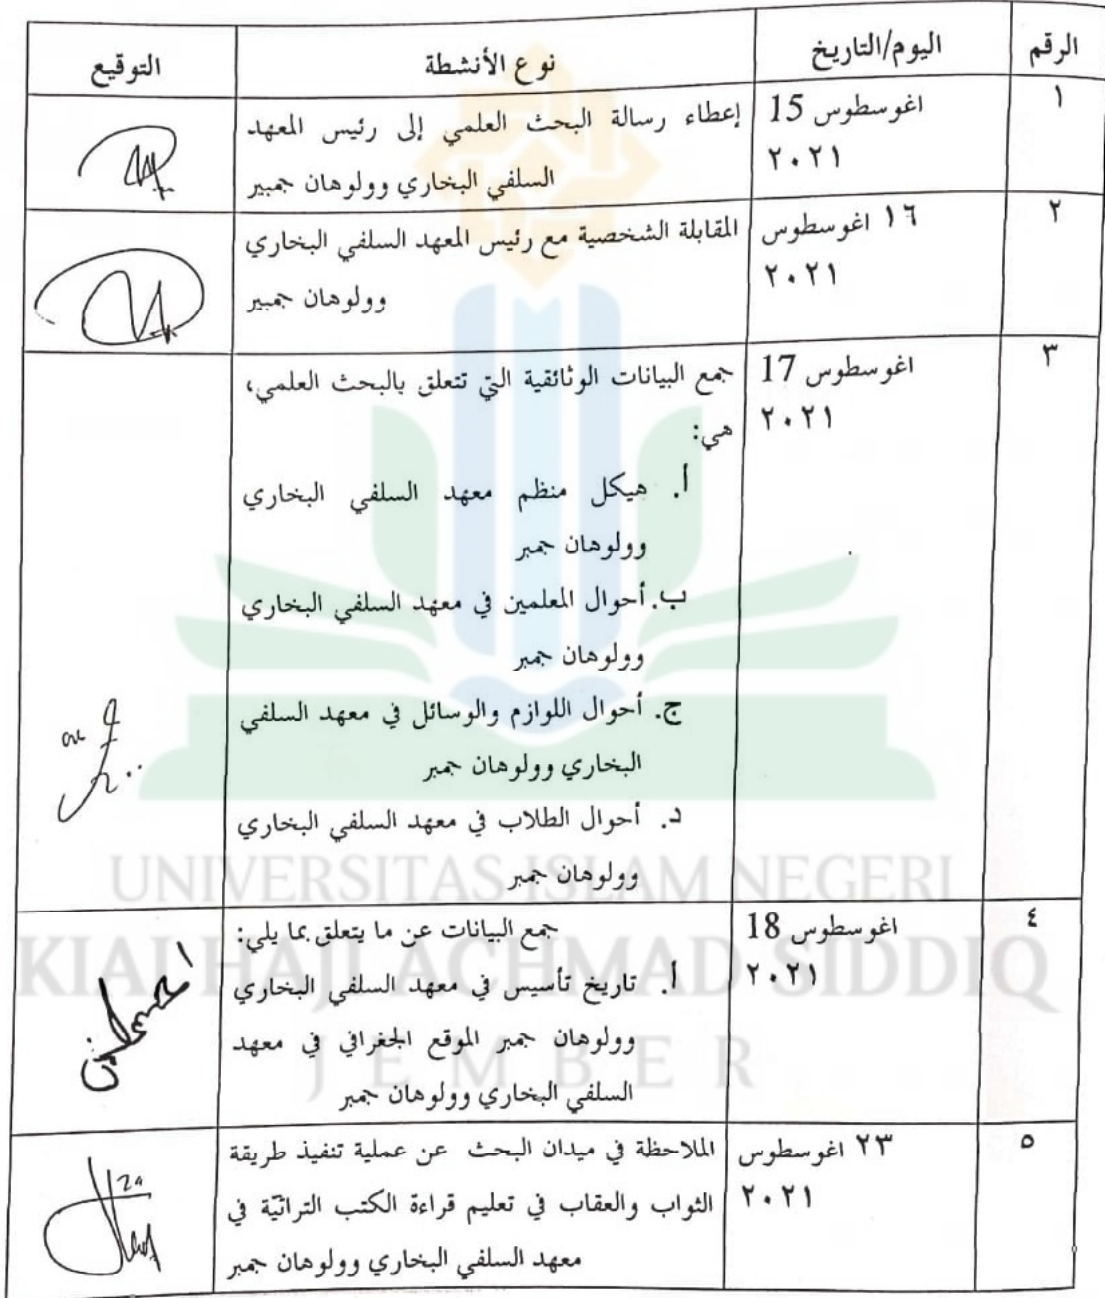 الرقم اليوم/التاريخ نوع الأنشطة التوقيع
١ اغوسطوس 15 إعطاء رسالة البحث العلمي إلى رئيس المعهد
٢٠٢١ السلفي البخاري وولوهان جمبير
٢ ١٦ اغوسطوس المقابلة الشخصية مع رئيس المعهد السلفي البخاري
٢٠٢١ وولوهان جمبير
٣ اغوسطوس 17 جمع البيانات الوثائقية التي تتعلق بالبحث العلمي،
٢٠٢١ هي:
أ. هيكل منظم معهد السلفي البخاري
وولوهان جمبر
ب. أحوال المعلمين في معهد السلفي البخاري
وولوهان جمبر
ج. أحوال اللوازم والوسائل في معهد السلفي
البخاري وولوهان جمبر
د. أحوال الطلاب في معهد السلفي البخاري
وولوهان جمبر
٤ اغوسطوس 18 جمع البيانات عن ما يتعلق بما يلي:
٢٠٢١ أ. تاريخ تأسيس في معهد السلفي البخاري
وولوهان جمبر الموقع الجغرافي في معهد
السلفي البخاري وولوهان جمبر
٥ ٢٣ اغوسطوس الملاحظة في ميدان البحث عن عملية تنفيذ طريقة
٢٠٢١ الثواب والعقاب في تعليم قراءة الكتب التراثية في
معهد السلفي البخاري وولوهان جمبر
UNIVERSITAS ISLAM NEGERI
KIAI HAJI ACHMAD SIDDIQ
JEMBER